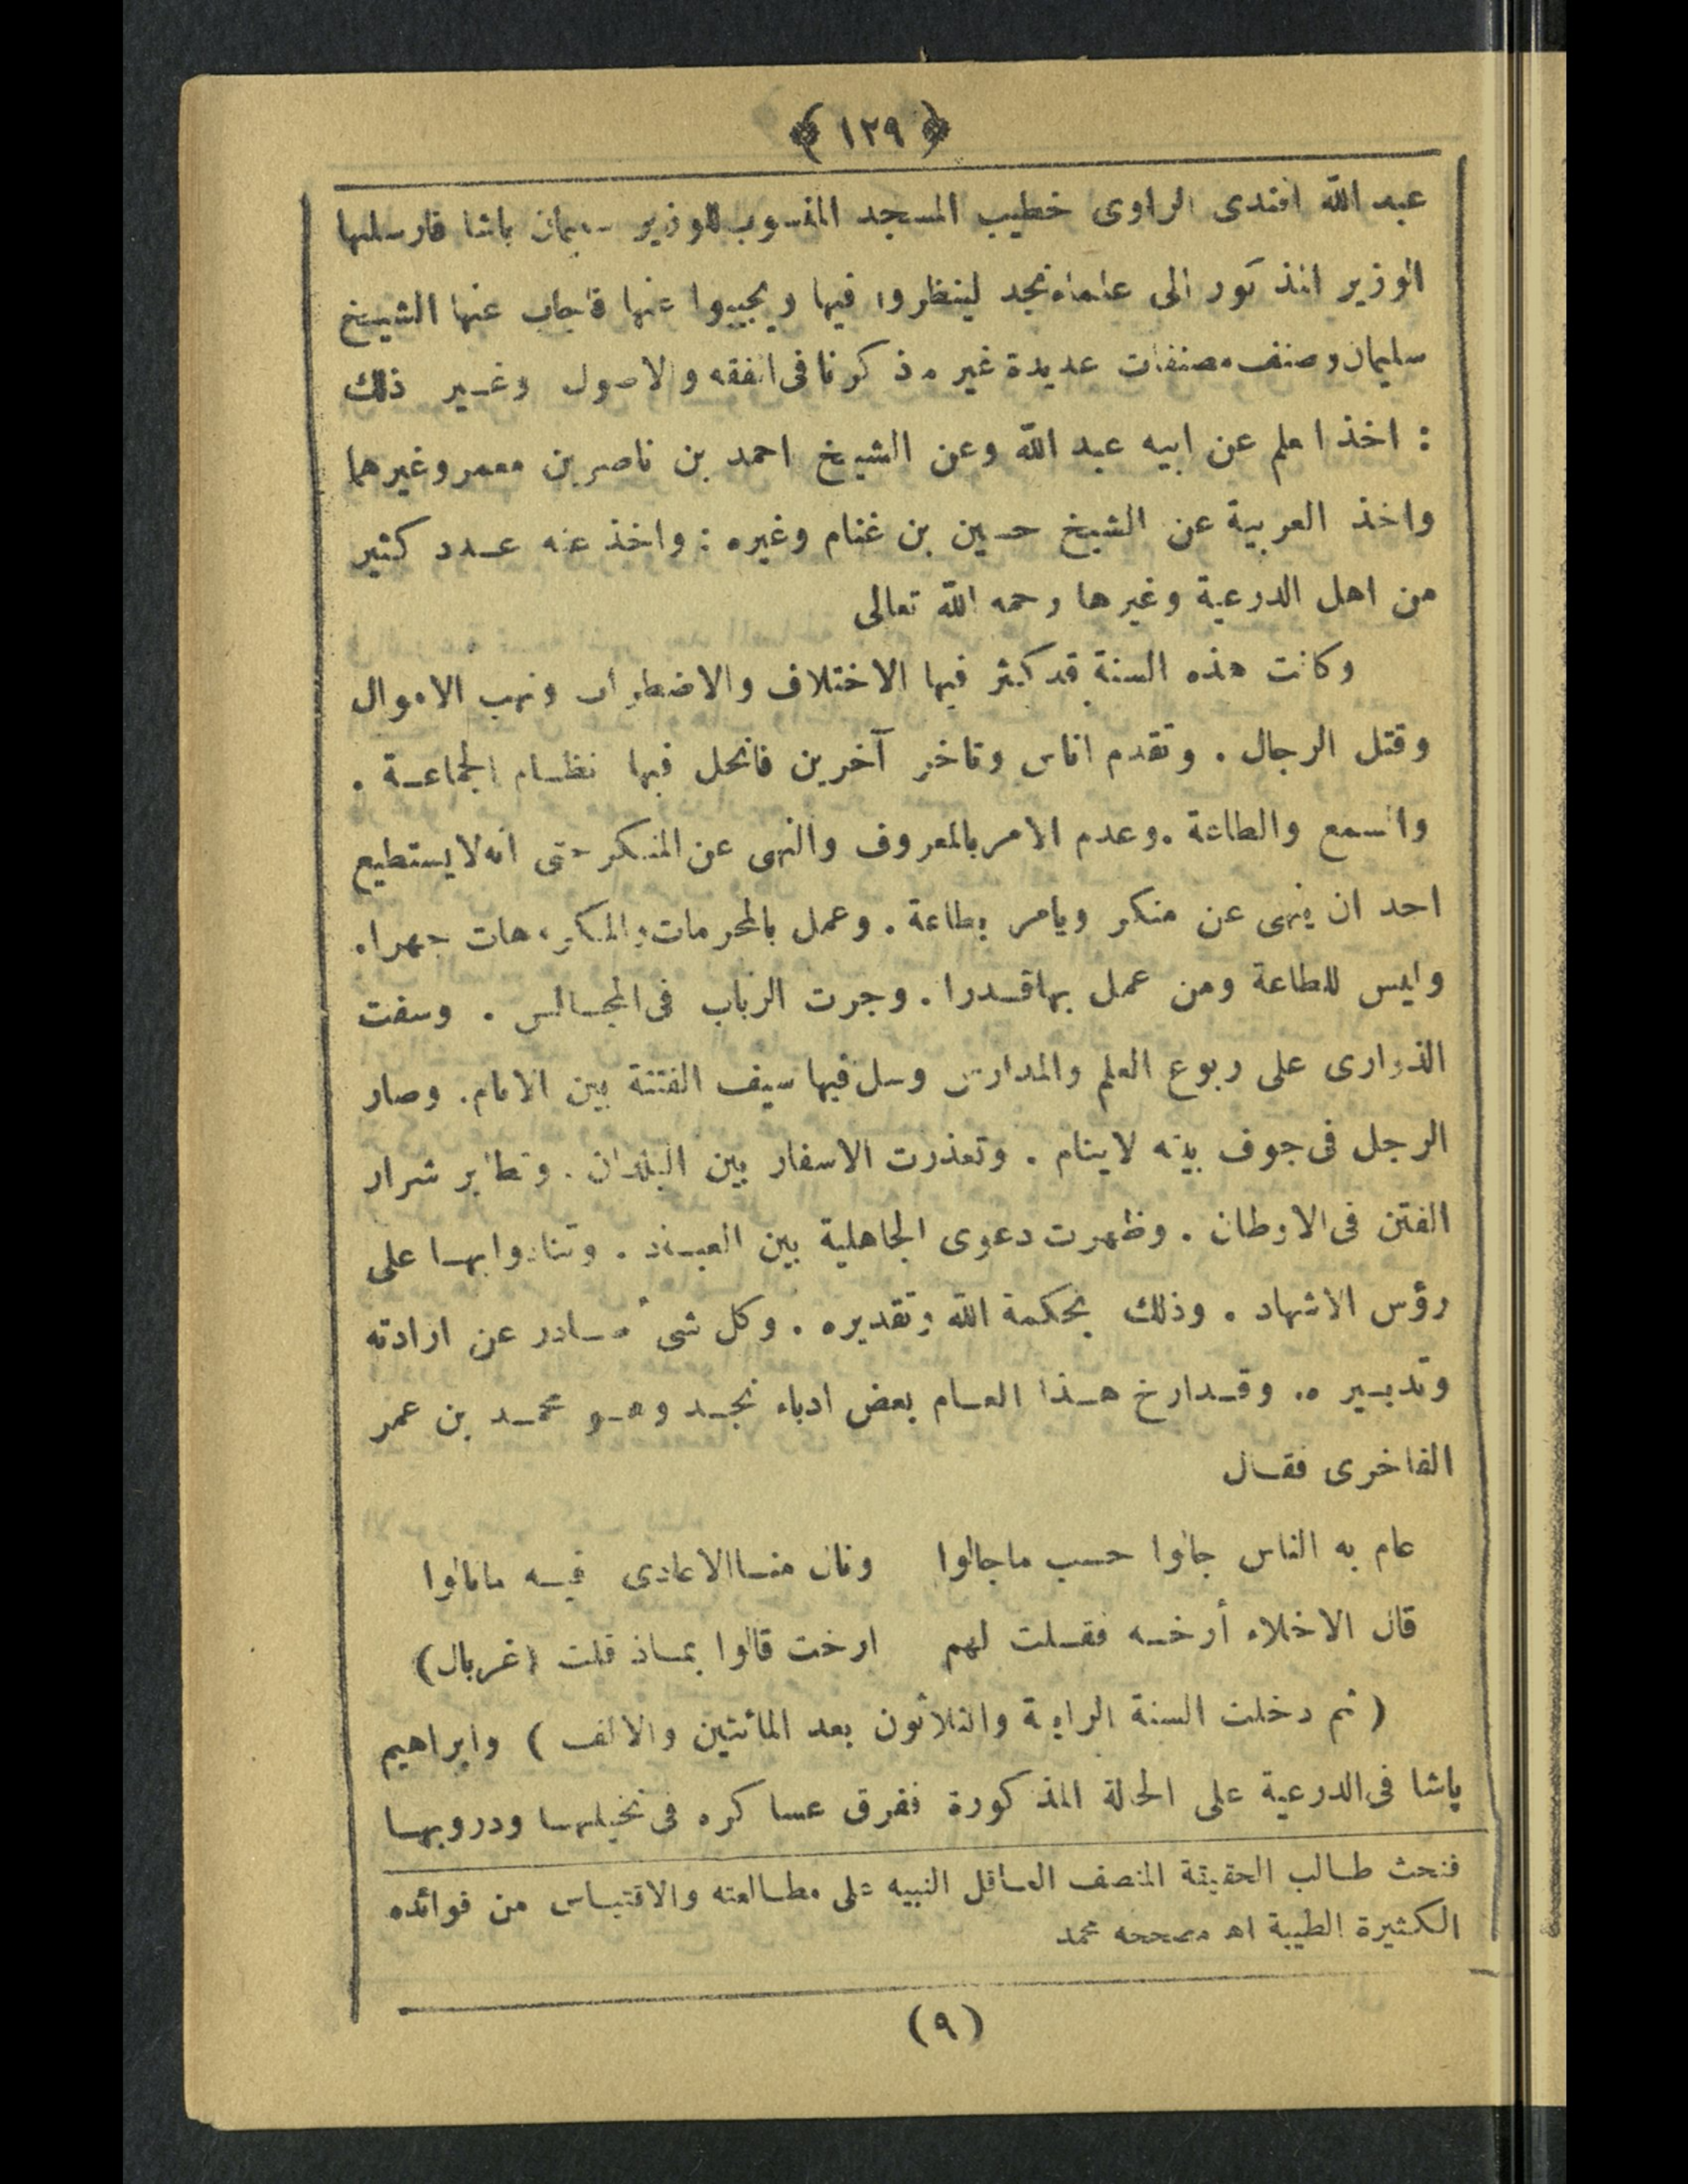 ﴿ ١٢٩ ﴾
عبد الله افندى الراوى خطيب المسجد المنسوب للوزير سليمان باشا فارسلها
الوزير المذكور الى علماء نجد لينظروا فيها ويجيبوا عنها فاجاب عنها الشيخ
سليمان وصنف مصنفات عديدة غير ما ذكرنا فى الفقه والاصول وغير ذلك
: اخذ العلم عن ابيه عبد الله وعن الشيخ احمد بن ناصر بن معمر وغيرهما
واخذ العربية عن الشيخ حسين بن غنام وغيره : واخذ عنه عدد كثير
من اهل الدرعية وغيرها رحمه الله تعالى
وكانت هذه السنة قد كثر فيها الاختلاف والاضطراب ونهب الاموال
وقتل الرجال . وتقدم اناس وتاخر آخرين فانحل فيها نظام الجماعة .
والسمع والطاعة . وعدم الامر بالمعروف والنهى عن المنكر حتى انه لا يستطيع
احد ان ينهى عن منكر ويامر بطاعة . وعمل بالمحرمات والمكروهات جهرا .
وليس للطاعة ومن عمل بها قدرا . وجرت الرباب فى المجالس . وسفت
الذوارى على ربوع العلم والمدارس وسل فيها سيف الفتنة بين الانام . وصار
الرجل فى جوف بيته لا ينام . وتعذرت الاسفار بين البلدان . وتطاير شرار
الفتن فى الاوطان . وظهرت دعوى الجاهلية بين العباد . وتنادوا بها على
رؤس الاشهاد . وذلك بحكمة الله وتقديره . وكل شىء صادر عن ارادته
وتدبيره . وقد ارخ هذا العام بعض ادباء نجد وهو محمد بن عمر
الفاخرى فقال
عام به الناس جالوا حسب ما جالوا ونال منا الاعادى فيه ما نالوا
قال الاخلاء أرخه فقلت لهم ارخت قالوا بماذ قلت (غربال)
( ثم دخلت السنة الرابعة والثلاثون بعد المائتين والالف ) وابراهيم
باشا فى الدرعية على الحالة المذكورة ففرق عساكره فى نخيلها ودروبها
فنحث طالب الحقيقة المنصف العاقل النبيه على مطالعته والاقتباس من فوائده
الكثيرة الطيبة اه مصححه محمد
(٩)